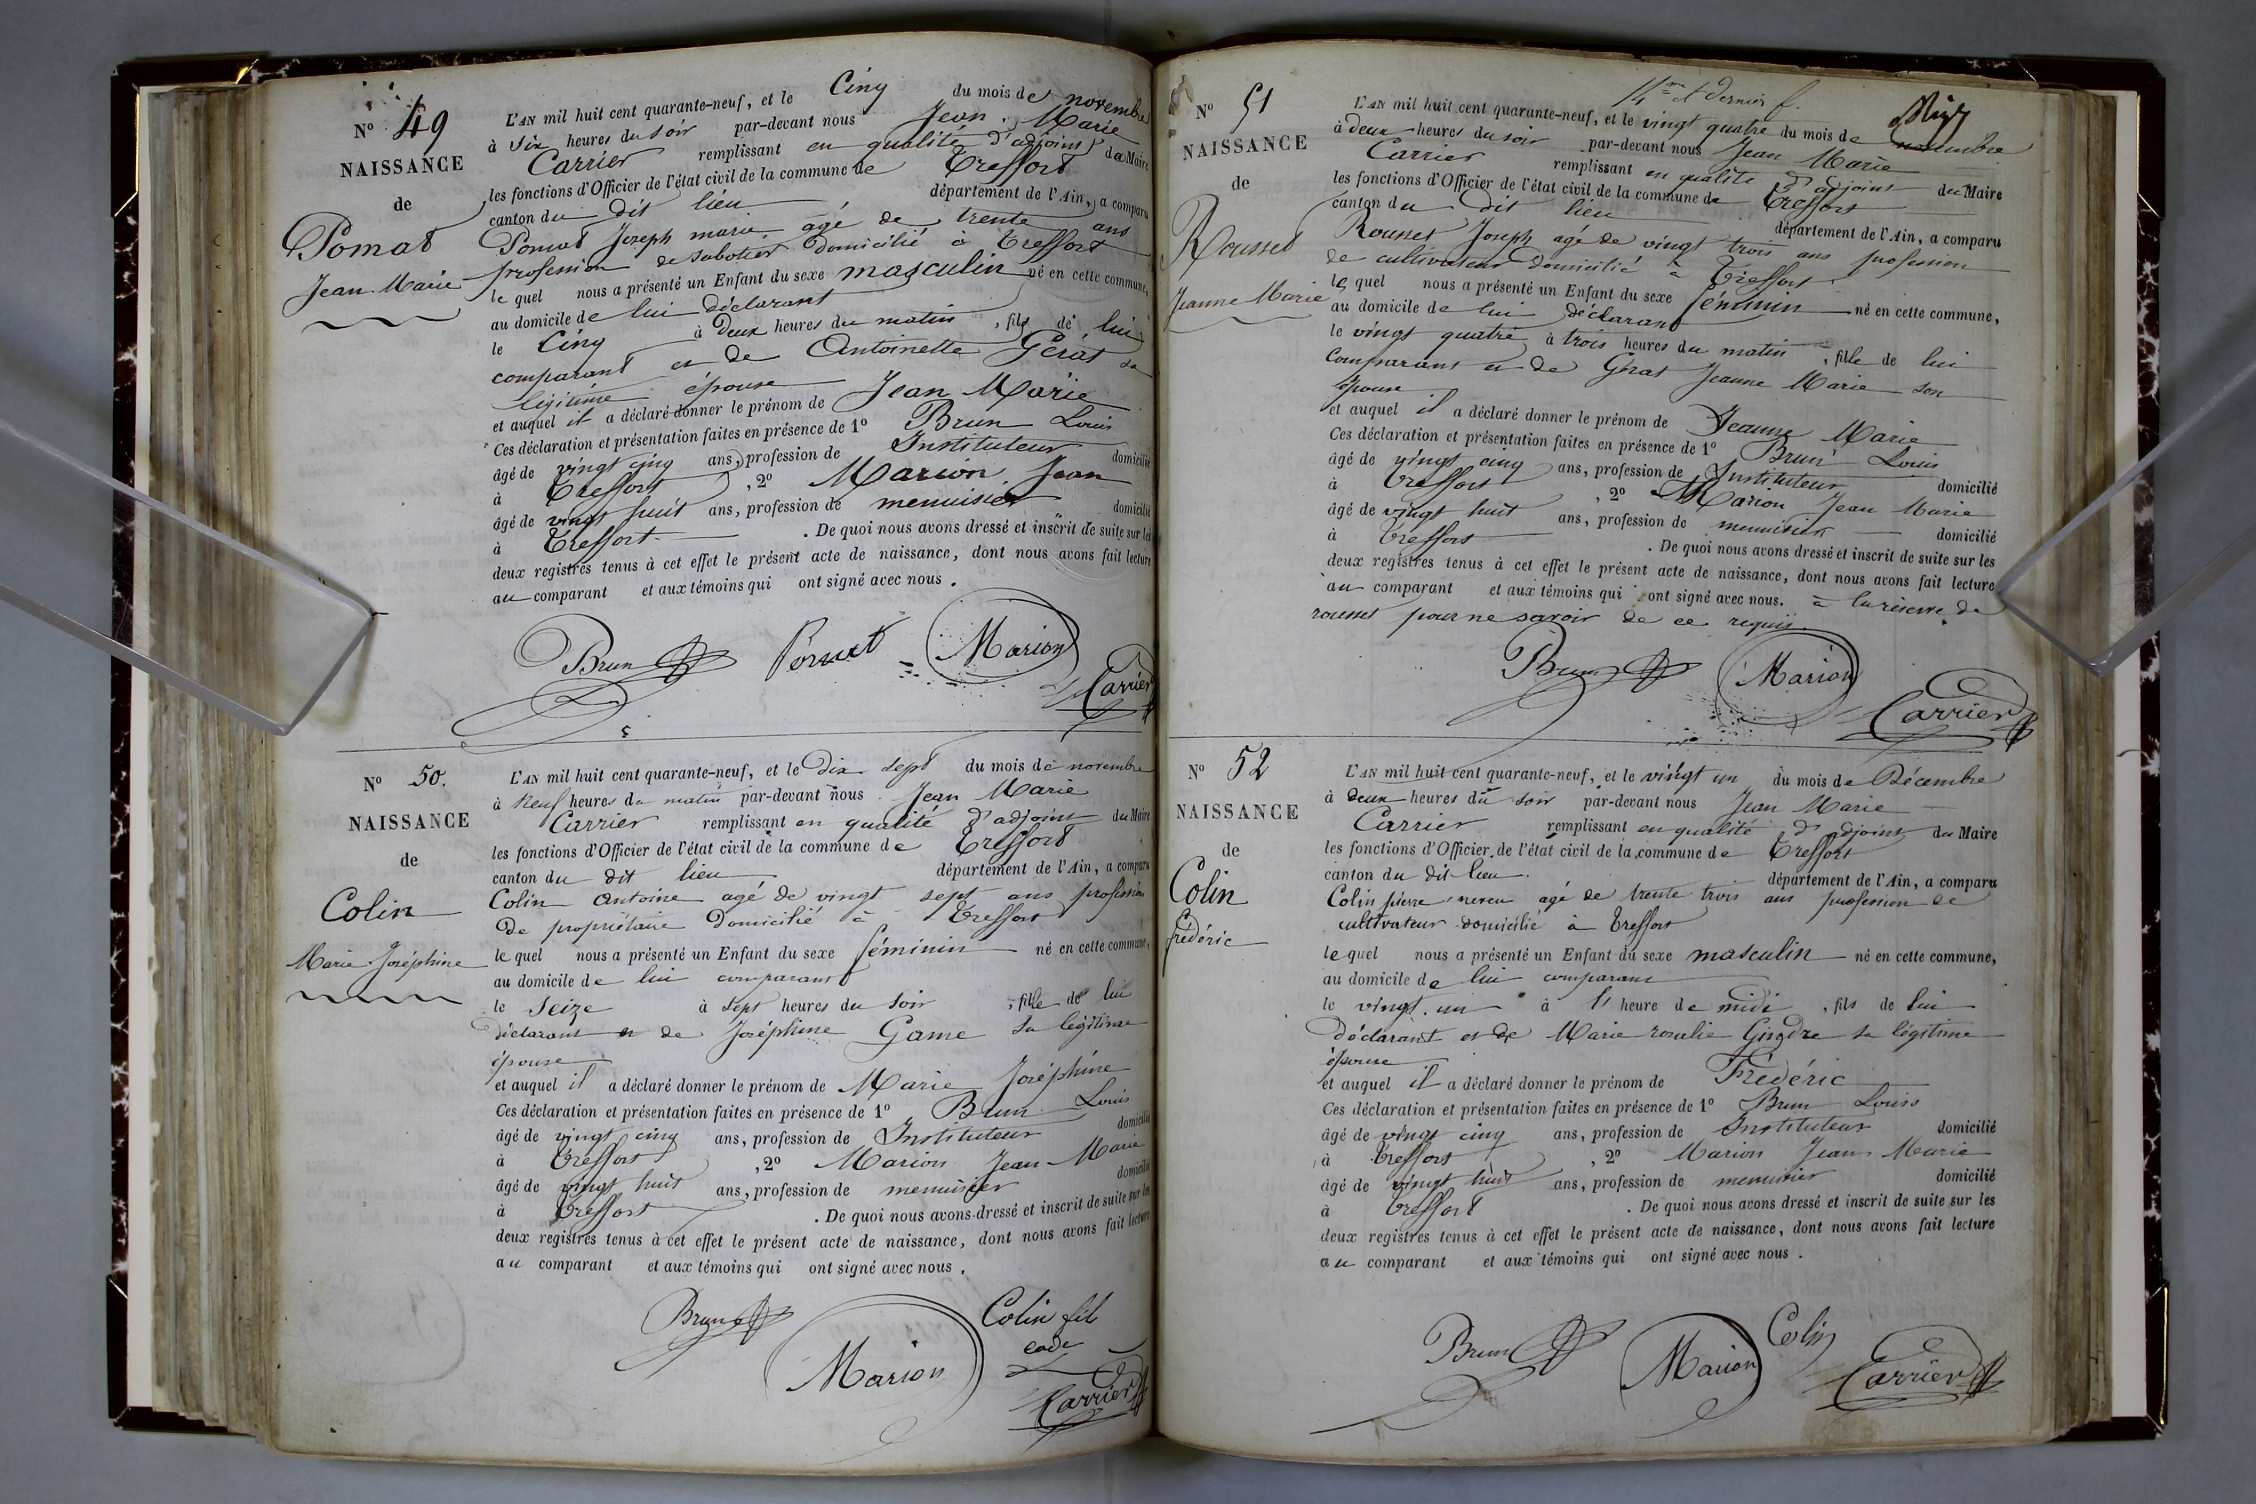 N° 49
NAISSANCE
de
Pomat
Jean Marie
L'AN mil huit cent quarante-neuf, et le Cinq du mois de novembre
à six heures du soir par-devant nous Jean Marie
Carrier remplissant en qualité d'adjoint du Maire
les fonctions d'Officier de l'état civil de la commune de Treffort
canton du dit lieu département de l'Ain, a comparu
Pomat Joseph marie agé de trente ans
profession de sabotier domicilié à Treffort
le quel nous a présenté un Enfant du sexe masculin né en cette commune,
au domicile de lui déclarant
le Cinq à deux heures du matin, fils de lui
comparant et de Antoinette Gérat sa
légitime épouse
et auquel il a déclaré donner le prénom de Jean Marie
Ces déclaration et présentation faites en présence de 1° Brun Louis
âgé de vingt cinq ans, profession de Instituteur domicilié
à Treffort, 2° Marion Jean
âgé de vingt huit ans, profession de menuisier domicilié
à Treffort. De quoi nous avons dressé et inscrit de suite sur les
deux registres tenus à cet effet le présent acte de naissance, dont nous avons fait lecture
au comparant et aux témoins qui ont signé avec nous.
Brun Pomat Marion
Carrier
N° 50.
NAISSANCE
de
Colin
Marie Joséphine
L'AN mil huit cent quarante-neuf, et le dix sept du mois de novembre
à Neuf heures du matin par-devant nous Jean Marie
Carrier remplissant en qualité d'adjoint du Maire
les fonctions d'Officier de l'état civil de la commune de Treffort
canton du dit lieu département de l'Ain, a comparu
Colin Antoine agé de vingt sept ans profession
De propriétaire Domicilié à Treffort
le quel nous a présenté un Enfant du sexe féminin né en cette commune,
au domicile de lui comparant
le seize à sept heures du soir, fille de lui
déclarant et de Joséphine Game sa légitime
épouse
et auquel il a déclaré donner le prénom de Marie Joséphine
Ces déclaration et présentation faites en présence de 1° Brun Louis
âgé de vingt cinq ans, profession de Instituteur domicilié
à Treffort, 2° Marion Jean Marie
âgé de vingt huit ans, profession de menuisier domicilié
à Treffort. De quoi nous avons dressé et inscrit de suite sur les
deux registres tenus à cet effet le présent acte de naissance, dont nous avons fait lecture
au comparant et aux témoins qui ont signé avec nous.
Brun Colin fil
cade
Marion
Carrier
14me et dernier f.
N° 51
NAISSANCE
de
Rousset
Jeanne Marie
L'AN mil huit cent quarante-neuf, et le vingt quatre du mois de novembre
à deux heures du soir par-devant nous Jean Marie
Carrier remplissant en qualité d'adjoint du Maire
les fonctions d'Officier de l'état civil de la commune de Treffort
canton du dit lieu département de l'Ain, a comparu
Rousset Joseph agé de vingt trois ans profession
de cultivateur domicilié à Treffort
le quel nous a présenté un Enfant du sexe féminin né en cette commune,
au domicile de lui déclarant
le vingt quatre à trois heures du matin, fille de lui
comparant et de Gérat Jeanne Marie son
épouse
et auquel il a déclaré donner le prénom de Jeanne Marie
Ces déclaration et présentation faites en présence de 1° Brun Louis
âgé de vingt cinq ans, profession de Instituteur domicilié
à Treffort, 2° Marion Jean Marie
âgé de vingt huit ans, profession de menuisier domicilié
à Treffort. De quoi nous avons dressé et inscrit de suite sur les
deux registres tenus à cet effet le présent acte de naissance, dont nous avons fait lecture
au comparant et aux témoins qui ont signé avec nous. à la réserve de
rousset pour ne savoir de ce requis.
Brun Marion
Carrier
N° 52
NAISSANCE
de
Colin
frédéric
L'AN mil huit cent quarante-neuf, et le vingt un du mois de Décembre
à deux heures du soir par-devant nous Jean Marie
Carrier remplissant en qualité d'adjoint du Maire
les fonctions d'Officier de l'état civil de la commune de Treffort
canton du dit lieu. département de l'Ain, a comparu
Colin pierre neveu agé de trente trois ans profession de
cultivateur domicilié à Treffort
le quel nous a présenté un Enfant du sexe masculin né en cette commune,
au domicile de lui comparant
le vingt un à l'heure de midi, fils de lui
déclarant et de Marie roselie Gindre sa légitime
épouse
et auquel il a déclaré donner le prénom de Frédéric
Ces déclaration et présentation faites en présence de 1° Brun Louis
âgé de vingt cinq ans, profession de Instituteur domicilié
à Treffort, 2° Marion Jean Marie
âgé de vingt huit ans, profession de menuisier domicilié
à Treffort. De quoi nous avons dressé et inscrit de suite sur les
deux registres tenus à cet effet le présent acte de naissance, dont nous avons fait lecture
au comparant et aux témoins qui ont signé avec nous.
Brun Marion Colin
Carrier